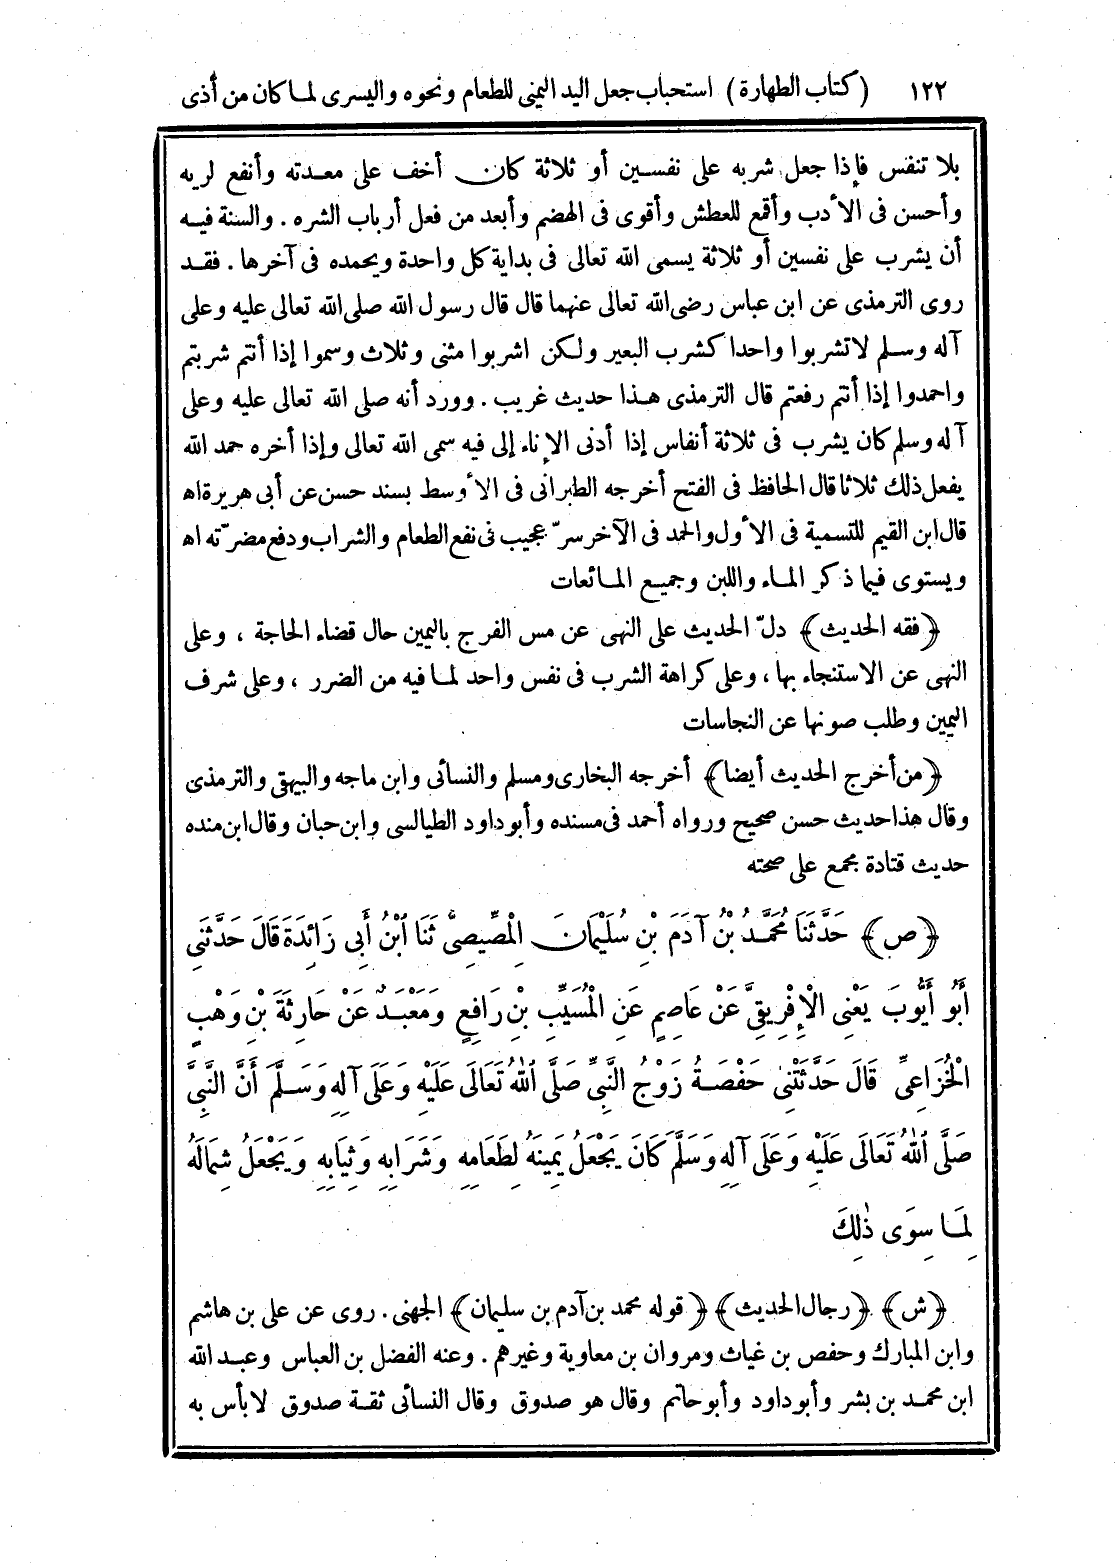 ١٢٢ (كتاب الطهارة) استحباب جعل اليد اليمنى للطعام ونحوه واليسرى لما كان من أذى
بلا تنفس فإذا جعل شربه على نفسين أو ثلاثة كان أخف على معدته وأنفع لريه
وأحسن فى الأدب وأقمع للعطش وأقوى فى الهضم وأبعد من فعل أرباب الشره . والسنة فيه
أن يشرب على نفسين أو ثلاثة يسمى الله تعالى فى بداية كل واحدة ويحمده فى آخرها . فقد
روى الترمذى عن ابن عباس رضى الله تعالى عنهما قال قال رسول الله صلى الله تعالى عليه وعلى
آله وسلم لا تشربوا واحدا كشرب البعير ولكن اشربوا مثنى وثلاث وسموا إذا أنتم شربتم
واحمدوا إذا أنتم رفعتم قال الترمذى هذا حديث غريب . وورد أنه صلى الله تعالى عليه وعلى
آله وسلم كان يشرب فى ثلاثة أنفاس إذا أدنى الإناء إلى فيه سمى الله تعالى وإذا أخره حمد الله
يفعل ذلك ثلاثا قال الحافظ فى الفتح أخرجه الطبرانى فى الأوسط بسند حسن عن أبى هريرة اه
قال ابن القيم للتسمية فى الأول والحمد فى الآخر سرّ عجيب فى نفع الطعام والشراب ودفع مضرّته اه
ويستوى فيما ذكر الماء واللبن وجميع المائعات
﴿فقه الحديث﴾ دلّ الحديث على النهى عن مس الفرج باليمين حال قضاء الحاجة ، وعلى
النهى عن الاستنجاء بها ، وعلى كراهة الشرب فى نفس واحد لما فيه من الضرر ، وعلى شرف
اليمين وطلب صونها عن النجاسات
﴿من أخرج الحديث أيضا﴾ أخرجه البخارى ومسلم والنسائى وابن ماجه والبيهقى والترمذى
وقال هذا حديث حسن صحيح ورواه أحمد فى مسنده وأبو داود الطيالسى وابن حبان وقال ابن منده
حديث قتادة مجمع على صحته
﴿ص﴾ حَدَّثَنَا مُحَمَّدُ بْنُ آدَمَ بْنِ سُلَيْمَانَ الْمِصِّيصِىُّ ثَنَا ابْنُ أَبِى زَائِدَةَ قَالَ حَدَّثَنِى
أَبُو أَيُّوبَ يَعْنِى الْإِفْرِيقِىَّ عَنْ عَاصِمٍ عَنِ الْمُسَيِّبِ بْنِ رَافِعٍ وَمَعْبَدٌ عَنْ حَارِثَةَ بْنِ وَهْبٍ
الْخُزَاعِىِّ قَالَ حَدَّثَتْنِى حَفْصَةُ زَوْجُ النَّبِىِّ صَلَّى اللهُ تَعَالَى عَلَيْهِ وَعَلَى آلِهِ وَسَلَّمَ أَنَّ النَّبِىَّ
صَلَّى اللهُ تَعَالَى عَلَيْهِ وَعَلَى آلِهِ وَسَلَّمَ كَانَ يَجْعَلُ يَمِينَهُ لِطَعَامِهِ وَشَرَابِهِ وَثِيَابِهِ وَيَجْعَلُ شِمَالَهُ
لِمَا سِوَى ذٰلِكَ
﴿ش﴾ ﴿رجال الحديث﴾ ﴿قوله محمد بن آدم بن سليمان﴾ الجهنى . روى عن على بن هاشم
وابن المبارك وحفص بن غياث ومروان بن معاوية وغيرهم . وعنه الفضل بن العباس وعبد الله
ابن محمد بن بشر وأبو داود وأبو حاتم وقال هو صدوق وقال النسائى ثقة صدوق لا بأس به